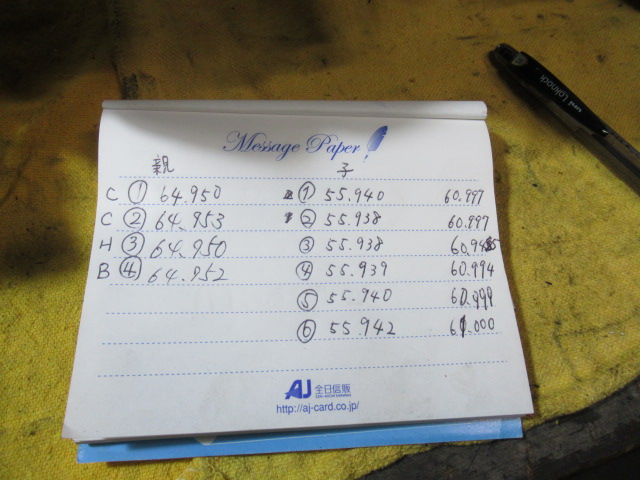 Message Paper
親 子
C ① 64.950 ① 55.940 60.997
C ② 64.953 ② 55.938 60.997
H ③ 64.950 ③ 55.938
B ④ 64.952 ④ 55.939 60.994
⑤ 55.940 60.999
⑥ 55.942 61.000
AJ 全日信販
http://aj-card.co.jp/
uni Laknock